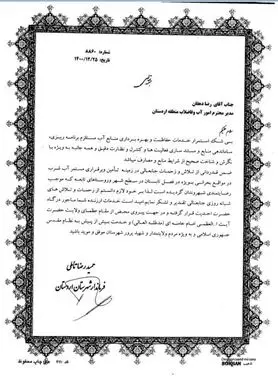 شماره: ۸۸۶۰
تاریخ: ۱۴۰۰/۱۲/۲۵
جناب آقای رضا دهقان
مدیر محترم امور آب وفاضلاب منطقه اردستان
سلام علیکم
بی شک استمرار خدمات حفاظت و بهره برداری منابع آب مستلزم برنامه ریزی،
ساماندهی منابع و مستند سازی فعالیت ها و کنترل و نظارت دقیق و همه جانبه به ویژه با
نگرش و شناخت صحیح از شرایط منابع و مصارف میباشد
ضمن قدردانی از تلاش و زحمات جنابعالی در زمینه تأمین وبرقراری مستمر آب شرب
در مواقع بحرانی بویژه در فصل تابستان در سطح شهر وروستاهای تابعه که موجب
رضایتمندی شهروندان گردیده است لذا بر خود لازم دانستم از زحمات و تلاش های
شبانه روزی جنابعالی تقدیر و تشکر نمایم امید است خدمات ارزنده شما ماجور درگاه
حضرت احدیت قرار گرفته و در جهت پیروی محض از مقام عظمای ولایت حضرت آیت
ا... العظمی امام خامنه ای (مدظله العالی) و خدمت بیش از پیش به نظام مقدس
جمهوری اسلامی و به ویژه مردم ولایتمدار و شهید پرور شهرمان موفق و موید باشید
حمیدرضا تاملی
فرماندار شهرستان اردستان
حق چاپ محفوظ
BORHAN